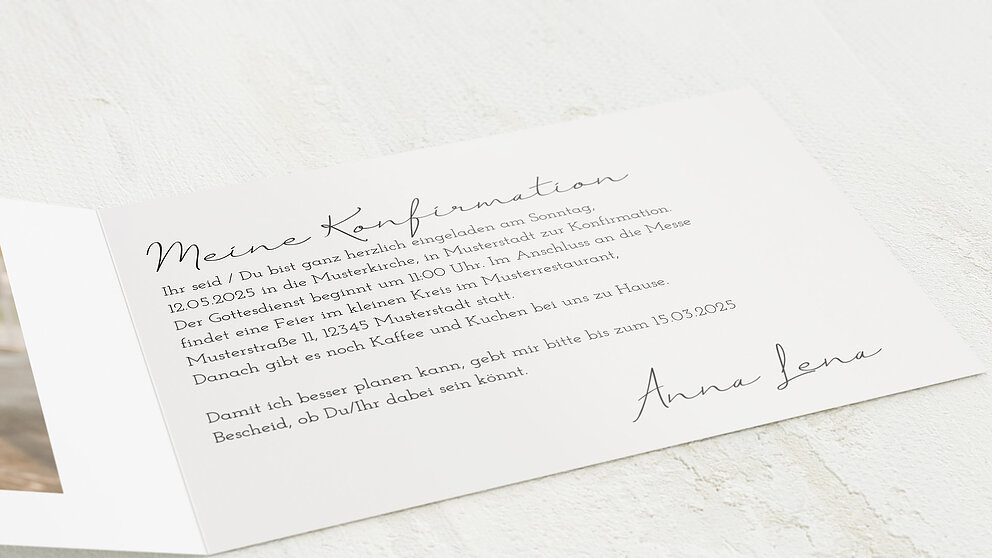 Meine Konfirmation
Ihr seid / Du bist ganz herzlich eingeladen am Sonntag,
12.05.2025 in die Musterkirche, in Musterstadt zur Konfirmation.
Der Gottesdienst beginnt um 11:00 Uhr. Im Anschluss an die Messe
findet eine Feier im kleinen Kreis im Musterrestaurant,
Musterstraße 11, 12345 Musterstadt statt.
Danach gibt es noch Kaffee und Kuchen bei uns zu Hause.
Damit ich besser planen kann, gebt mir bitte bis zum 15.03.2025
Bescheid, ob Du/Ihr dabei sein könnt.
Anna Lena